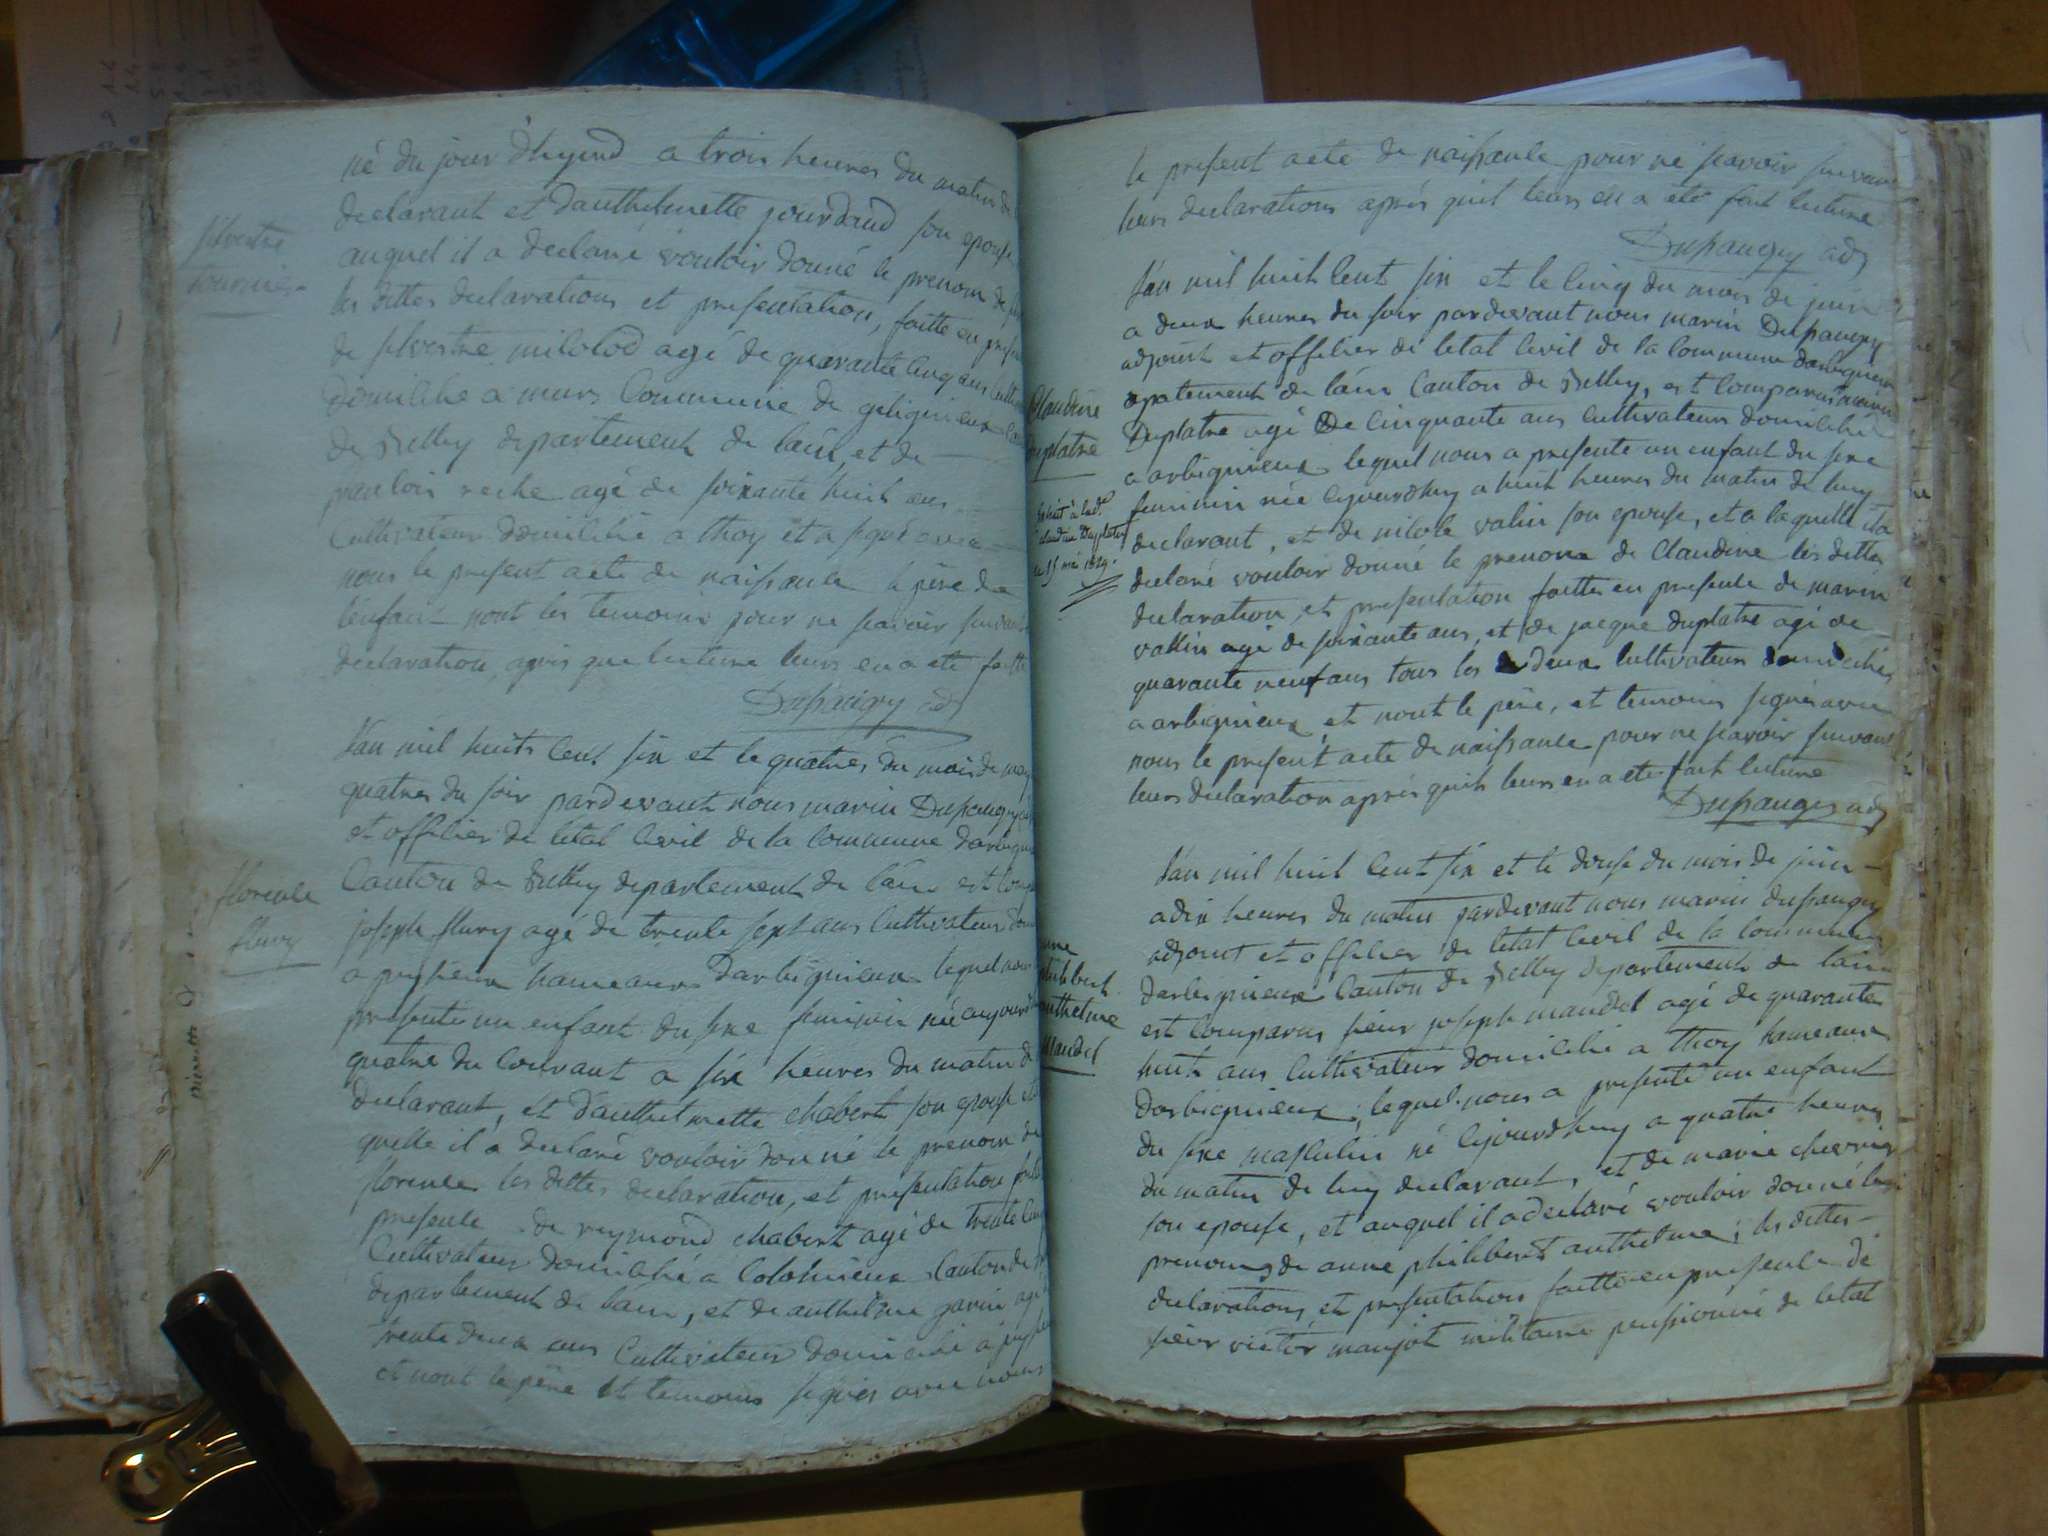 Silvestre
tournier
né du jour d'hyerd a trois heures du matin de
declarant et danthelmette jourdand son epouse
auquel il a declaré vouloir donné le prenom de
les dittes declarations et presentation, faitte en presen
de silvestre milolod agé de quarante cinq ans cult
domicilié a murs Commune de gelignieux
de Belley departement de lain, et de
agé de soixante huit ans
Cultivateur domicilié a thoy et a signé avec
nous le present acte de naissance le père de
lenfant nont les temoins pour ne scavoir suivant
declaration, apris que lecture leurs en a eté faitte
Dupaugey adj
florence
flury
l'an mil huits cent six et le quatres du mois de
quatres du soir pardevant nous marin Dupaugey
et officier de letat Civil de la Commune darbigni
Canton de Belley departement de lain est comp
joseph flury agé de trente sept ans Cultivateur dom
a hameaux darbignieux lequel nous
presente un enfant du sexe feminin née aujourd
quatre du Courant a six heures du matin d
declarant, et danthelmette chabert son epouse et
quelle il a declaré vouloir donné le prenom de
florence les dittes declaration, et presentation faitt
presence de reymond chabert agé de trente cinq
Cultivateur domicilié a Colomieux Canton de
departement de lain, et de anthelme garin agé
trente deux ans Cultivateur domicilié a
et nont le père et temoins signés avec nous
le present acte de naissance pour ne scavoir suivant
leurs declarations aprés quil leurs en a eté fait lecture
Dupaugey adj
Claudine
duplatre
lan mil huit Cent six et le cinq du mois de juin
a deux heures du soir pardevant nous marin Dupaugey
adjoint et officier de letat Civil de la Commune darbignieu
epatement de lain Canton de Belley, est Comparus
Duplatre agé De Cinquante ans Cultivateur domicilié
a arbignieux lequel nous a presente un enfant du sexe
feminin née cejourdhuy a huit heures du matin de luy
declarant, et de nicole valin son epouse, et a laquelle il a
declaré vouloir donné le prenom de Claudine les dittes
declaration, et presentation faitte en presence de marin
vallin agé de soixante ans, et de jacque duplatre agé de
quarante neuf ans tous les deux Cultivateurs domiciliés
a arbignieux et nont le père, et temoins signés avec
nous le present acte de naissance pour ne scavoir suivant
leurs declaration aprés quils leurs en a eté fait lecture
Dupaugey adj
claudine Duplatre
15 mai 1829.
anne
philibert
anthelme
Maudet
l'an mil huit Cent six et le douse du mois de juin
a dix heures du matin pardevant nous marin dupaugey
adjoint et officier de letat Civil de la Commune
darbignieux Canton de Belley departement de lain
est Comparus sieur joseph maudet agé de quarante
huit ans Cultivateur domicilié a thoy hameaux
darbignieux, lequel nous a presenté un enfant
du sexe masculin né Cejourdhuy a quatre heures
du matin de luy declarant, et de marie chevrier
son epouse, et auquel il a declaré vouloir donné les
prenoms de anne philibert anthelme; les dittes
declarations, et presentations faitte en presence de
sieur victor maujot militaire pensionné de letat